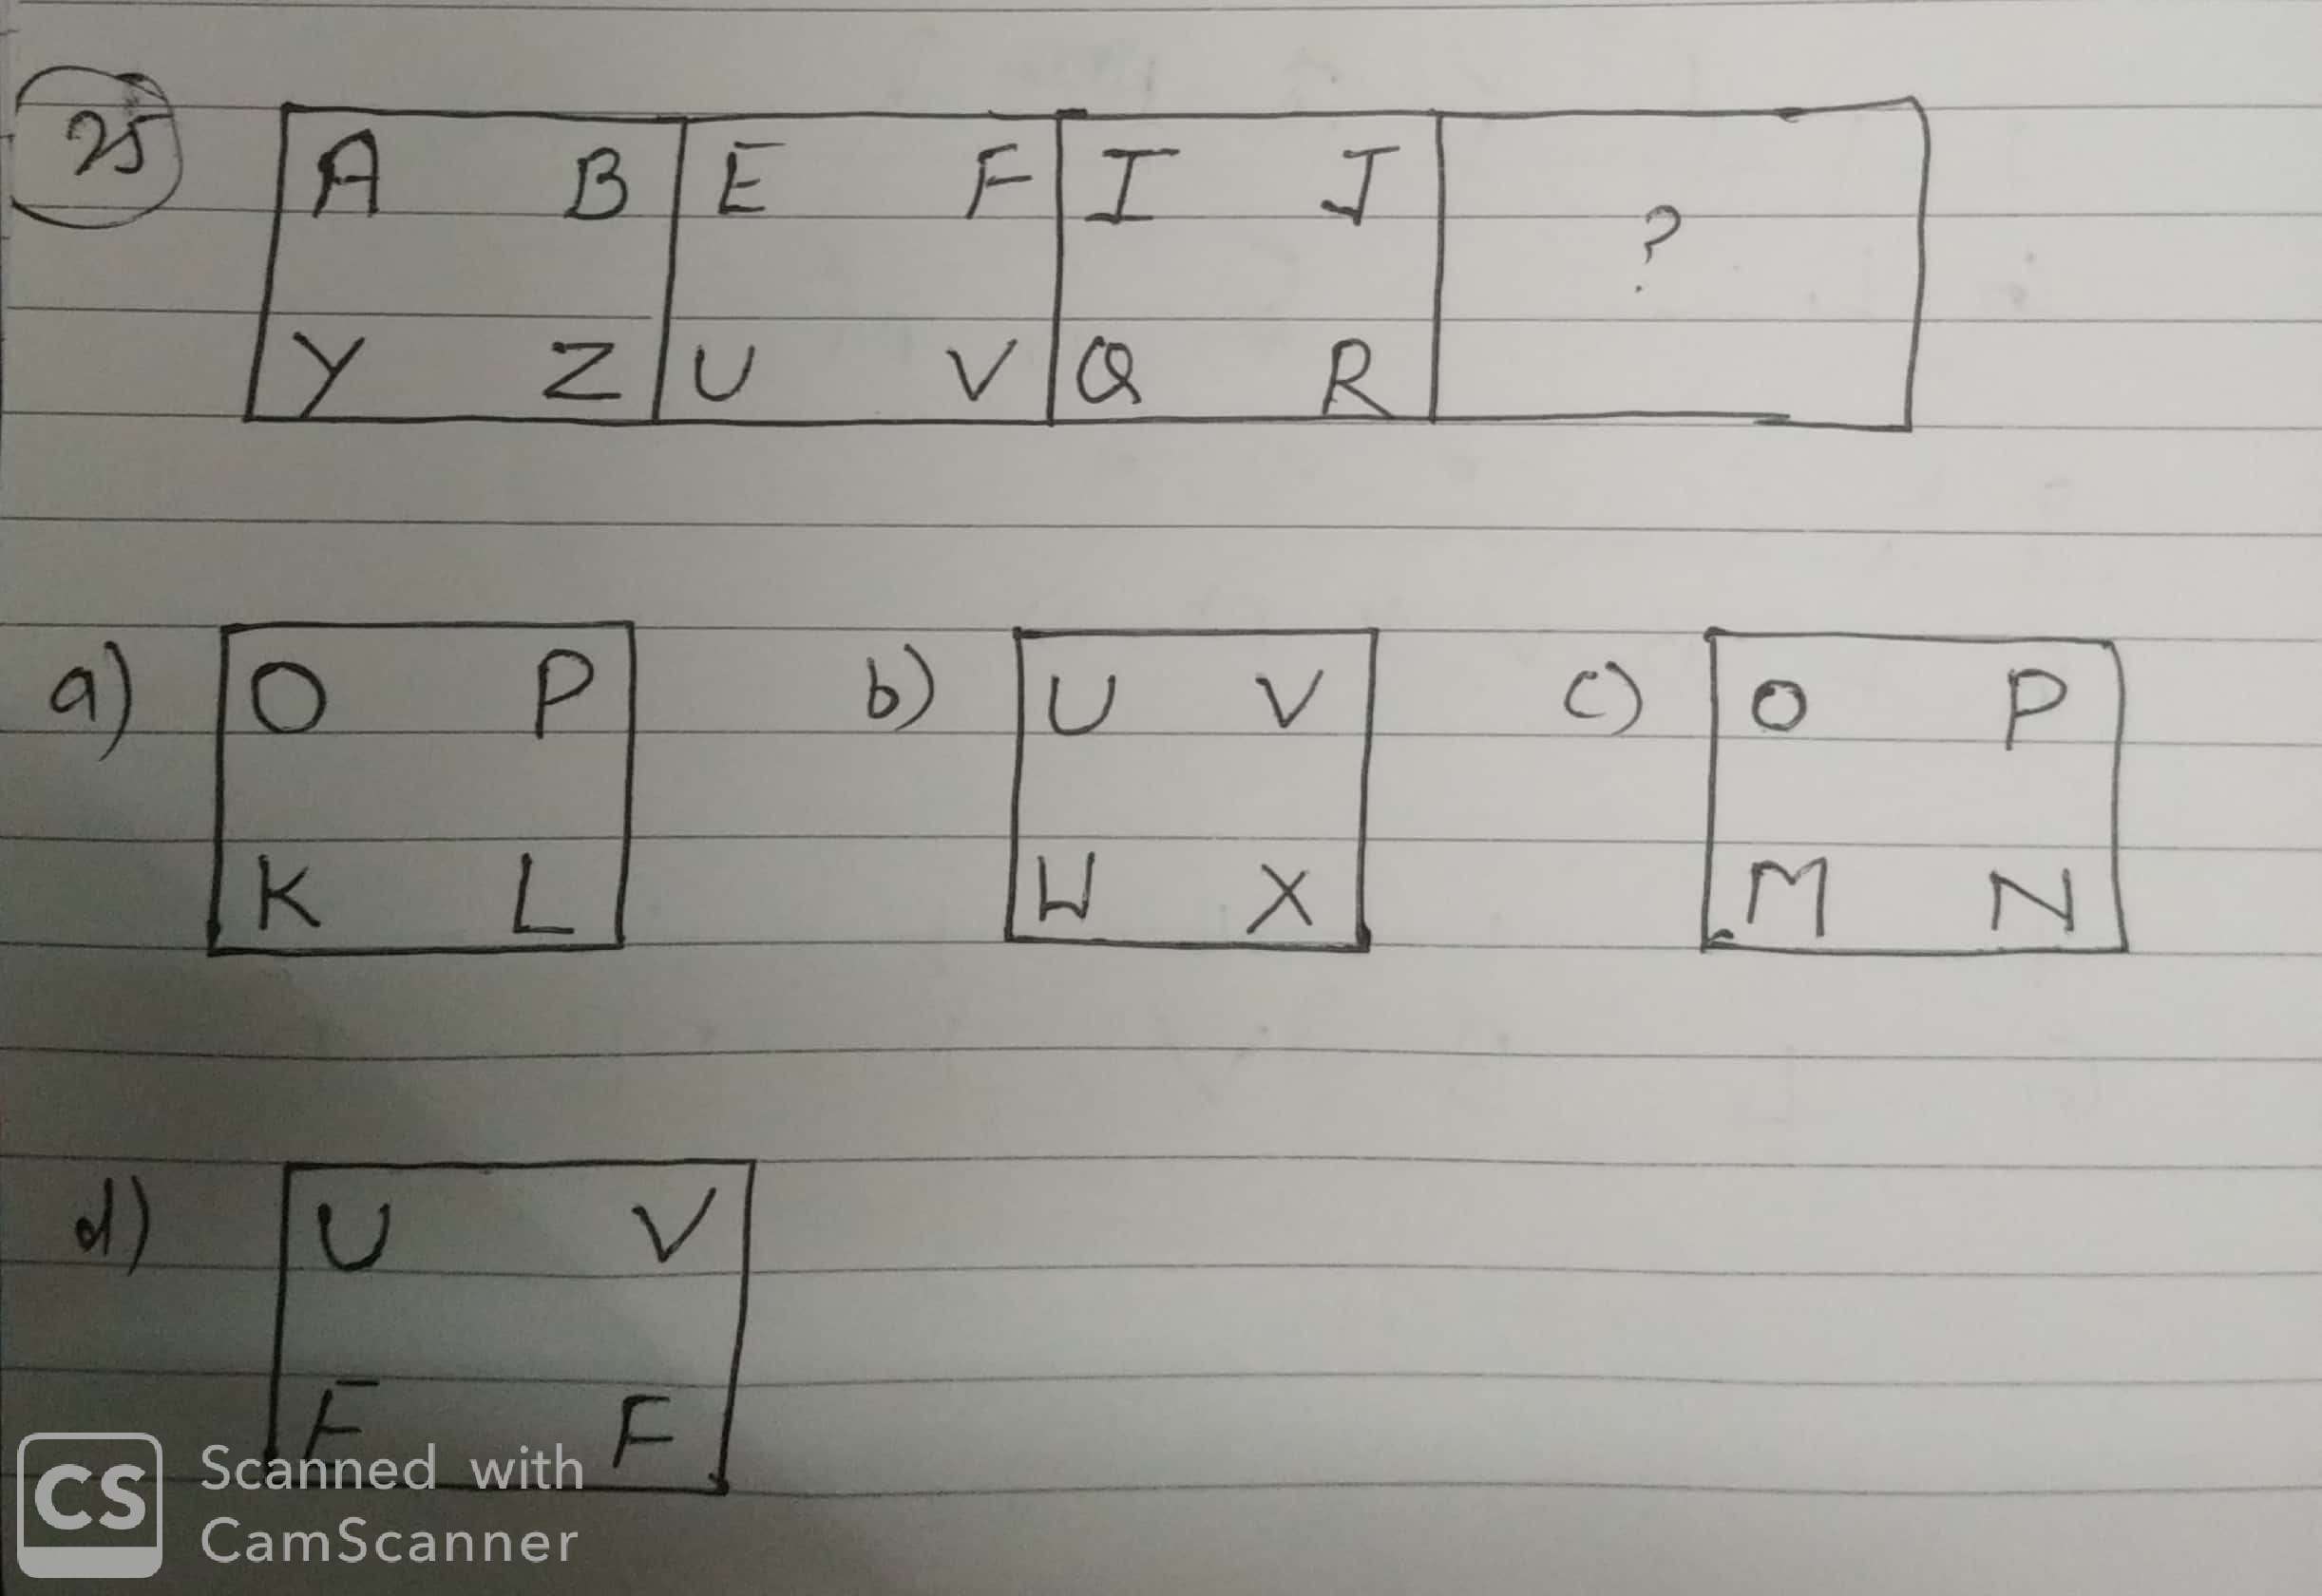 25
A B E F I J ?
Y Z U V Q R
a) O P b) U V c) O P
K L W X M N
d) U V
E F
CS Scanned with
CamScanner